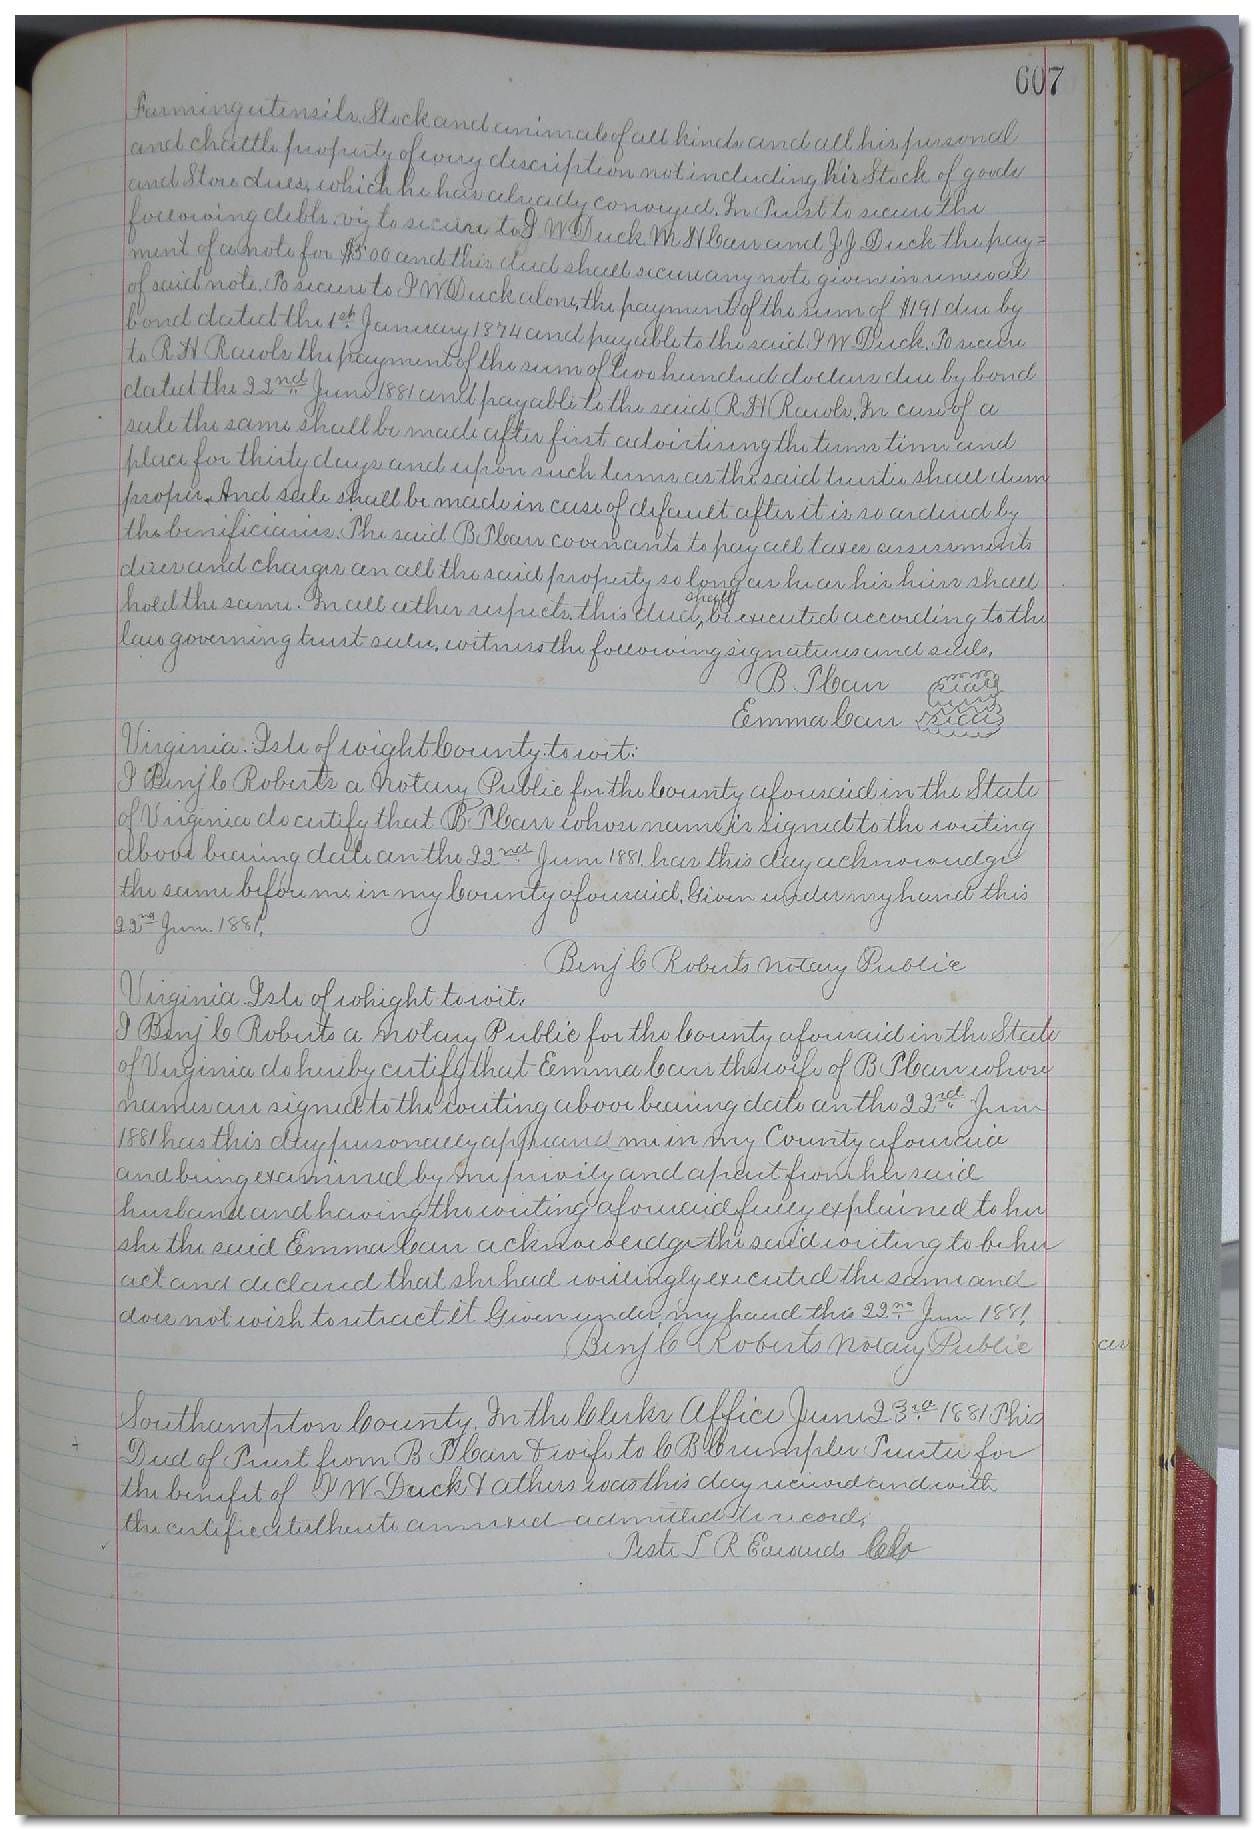 607
Farming utensils, Stock and animals of all kinds and all his personal
and chattle property of every description not including his Stock of goods
and Store dues, which he has already conveyed. In Trust to secure the
following debts. viz to secure to J W Duck M H Carr and J. J. Duck the pay=
ment of a note for $500 and this deed shall secure any note given in renewal
of said note. To secure to J W Duck alone, the payment of the sum of $191 due by
bond dated the 1st January 1874 and payable to the said J W Duck. To secure
to R. H Rawls the payment of the sum of two hundred dollars due by bond
dated the 22nd June 1881 and payable to the said R. H Rawls. In case of a
sale the same shall be made after first advertising the terms time and
place for thirty days and upon such terms as the said trustee shall deem
proper. And sale shall be made in case of default after it is so ordered by
the benificiaries. The said B. T Carr covenants to pay all taxes assessments
dues and charges on all the said property so long as he or his heirs shall
hold the same. In all other respects this deed, shall be executed according to the
law governing trust sales, witness the following signatures and seals.
B. T Carr seal
Emma Carr seal
Virginia. Isle of wight County. to wit:
I Benj C Roberts a Notary Public for the County aforesaid in the State
of Virginia do certify that B. T Carr whose name is signed to the writing
above bearing date on the 22nd June 1881. has this day acknowledge
the same before me in my County aforesaid. Given under my hand this
22nd June. 1881.
Benj C Roberts Notary Public
Virginia. Isle of whight to wit.
I Benj C Roberts a Notary Public for the County aforesaid in the State
of Virginia do hereby certify that Emma Carr the wife of B T Carr whose
names are signed to the writing above bearing date on the 22nd June
1881 has this day personally appeared me in my County aforesaid
and being examined by me privily and apart from her said
husband and having the writing aforesaid fully explained to her
she the said Emma Carr acknowledge the said writing to be her
act and declared that she had willingly executed the same and
does not wish to retract it Given under my hand this 22nd June 1881.
Benj C Roberts Notary Public
Southampton County. In the Clerks Office June 23rd 1881 This
Deed of Trust from B T Carr & wife to C B Crumpler Trustee for
the benefit of J W Duck & others was this day received and with
the certificates thereto annexed admitted to record.
Teste L R Edwards Clk